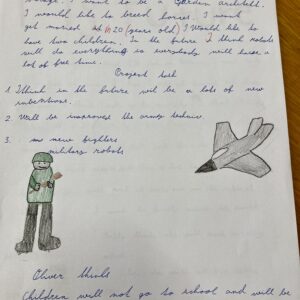 village. I want to be a Garden architekt.
I would like to breed horses. I want
get married at in 20 (years old) I Would like to
have two children. In the future I think robots
will do everything is everybody will have a
lot of free time.
Project task
1. Think in the future will be a lots of new
inventions.
2. Will be improved the army technic
3. new fighters
military robots
Oliver thinks
Children will not go to school and will be